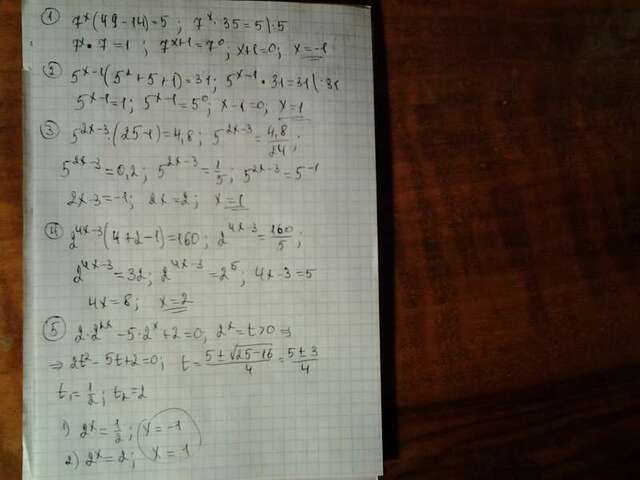 ① 7^x(49-14)=5; 7^x·35=5|:5
7^x·7=1; 7^{x+1}=7^0; x+1=0; x=-1
② 5^{x-1}(5^2+5+1)=31; 5^{x-1}·31=31|:31
5^{x-1}=1; 5^{x-1}=5^0; x-1=0; x=1
③ 5^{2x-3}·(25-1)=4,8; 5^{2x-3}=4,8/24;
5^{2x-3}=0,2; 5^{2x-3}=1/5; 5^{2x-3}=5^{-1}
2x-3=-1; 2x=2; x=1
④ 2^{4x-3}(4+2-1)=160; 2^{4x-3}=160/5;
2^{4x-3}=32; 2^{4x-3}=2^5; 4x-3=5
4x=8; x=2
⑤ 2·2^{2x}-5·2^x+2=0; 2^x=t>0 ⇒
⇒ 2t^2-5t+2=0; t=(5±√(25-16))/4=(5±3)/4
t_1=1/2; t_2=2
1) 2^x=1/2; x=-1
2) 2^x=2; x=1